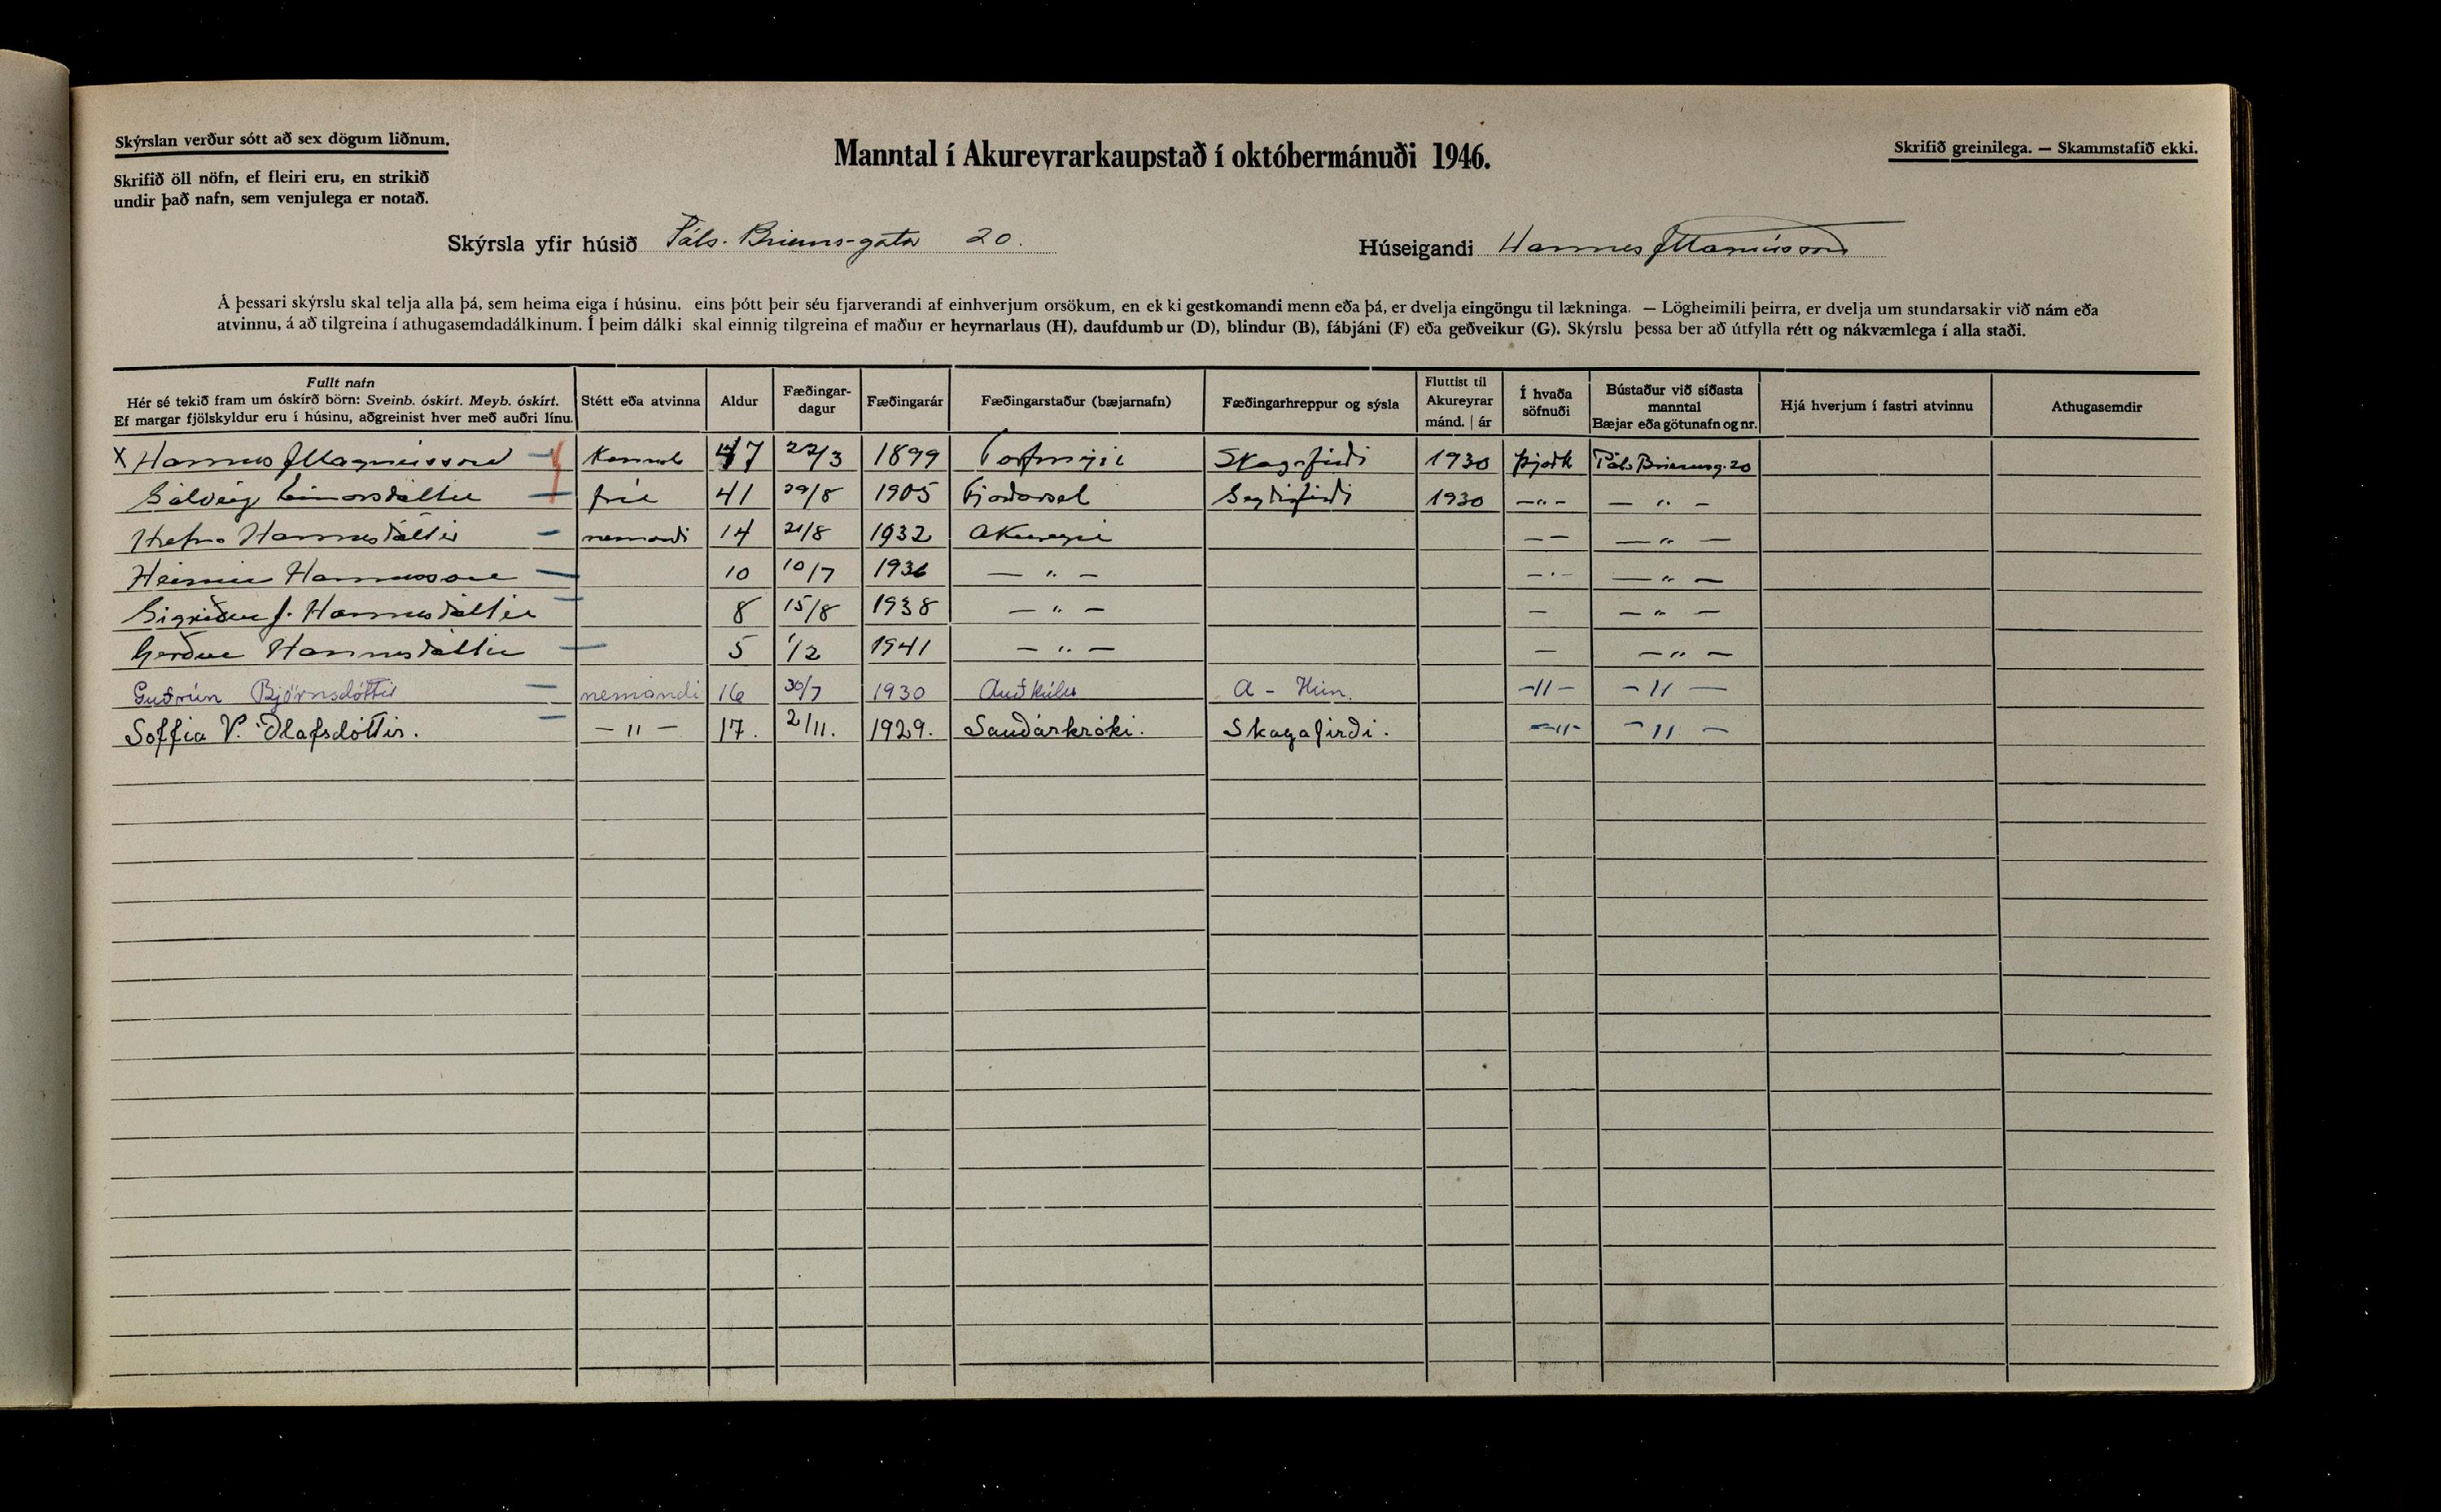 Skýrslan verður sótt að sex dögum liðnum.
Skrifið öll nöfn, ef fleiri eru, en strikið
undir það nafn, sem venjulega er notað.
Manntal í Akureyrarkaupstað í októbermánuði 1946.
Skrifið greinilega. — Skammstafið ekki.
Skýrsla yfir húsið Páls-Briems-gata 20.
Húseigandi Hannes J Magnússon
Á þessari skýrslu skal telja alla þá, sem heima eiga í húsinu. eins þótt þeir séu fjarverandi af einhverjum orsökum, en ek ki gestkomandi menn eða þá, er dvelja eingöngu til lækninga. — Lögheimili þeirra, er dvelja um stundarsakir við nám eða
atvinnu, á að tilgreina í athugasemdadálkinum. Í þeim dálki skal einnig tilgreina ef maður er heyrnarlaus (H), daufdumb ur (D), blindur (B), fábjáni (F) eða geðveikur (G). Skýrslu þessa ber að útfylla rétt og nákvæmlega í alla staði.
Fullt nafn
Hér sé tekið fram um óskírð börn: Sveinb. óskírt. Meyb. óskírt.
Ef margar fjölskyldur eru í húsinu, aðgreinist hver með auðri línu.
Stétt eða atvinna
Aldur
Fæðingar-
dagur
Fæðingarár
Fæðingarstaður (bæjarnafn)
Fæðingarhreppur og sýsla
Fluttist til
Akureyrar
mánd. | ár
Í hvaða
söfnuði
Bústaður við síðasta
manntal
Bæjar eða götunafn og nr.
Hjá hverjum í fastri atvinnu
Athugasemdir
X Hannes J Magnússon — 47 22/3 1899 Skagafirði 1930 Þjóðk Páls Briemsg. 20
Sólveig Einarsdóttir — frú 41 29/8 1905 Fjarðarsel Seyðisfirði 1930 —"— — " —
Hannesdóttir — nemandi 14 21/8 1932 Akureyri — — — " —
Heimir Hannesson — 10 10/7 1936 — " — — " — — " —
Sigríður J. Hannesdóttir — 8 15/8 1938 — " — — — " —
Gerður Hannesdóttir — 5 1/2 1941 — " — — — " —
Guðrún Björnsdóttir — nemandi 16 30/7 1930 Auðkúlu A - Hún. —"— — " —
Soffía V. Ólafsdóttir. — — " — 17. 2/11. 1929. Sauðárkróki. Skagafirði. —"— — " —